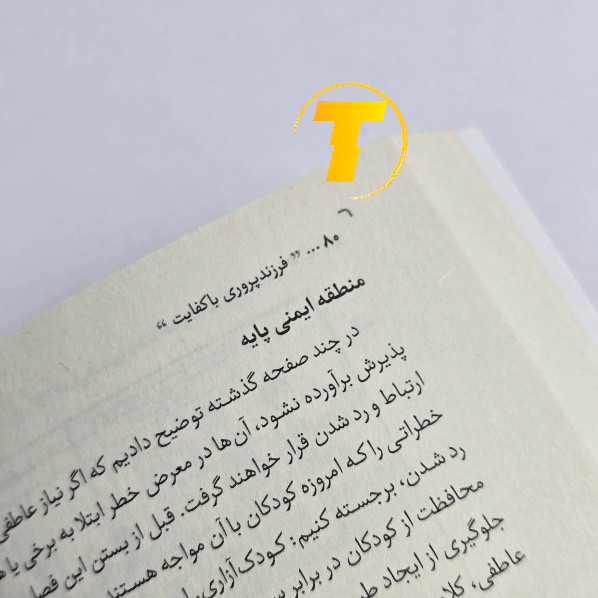 T
۸۰ ... ” فرزندپروری باکفایت “
منطقه ایمنی پایه
در چند صفحه گذشته توضیح دادیم که اگر نیاز عاطفی
پذیرش برآورده نشود، آن‌ها در معرض خطر ابتلا به برخی یا
ارتباط و رد شدن قرار خواهند گرفت. قبل از بستن این فصل
خطراتی را که امروزه کودکان با آن مواجه هستند
رد شدن، برجسته کنیم: کودک‌آزاری
محافظت از کودکان در برابر
جلوگیری از ایجاد
عاطفی،